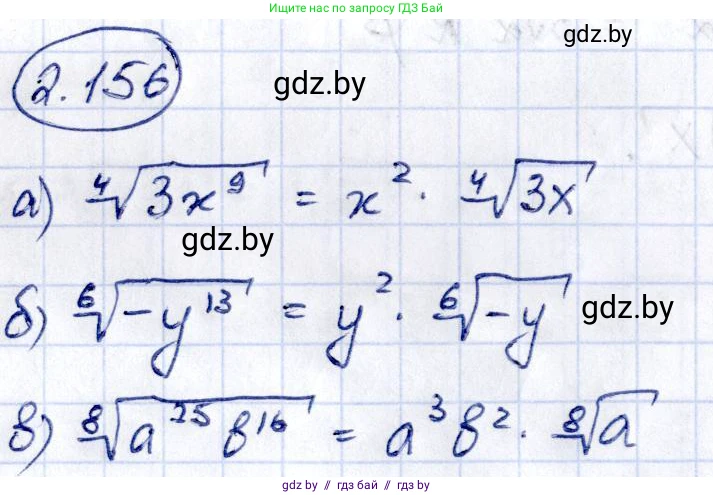 Ищите нас по запросу ГДЗ Бай
gdz.by
2.156
gdz.by
а) ⁴√(3x⁹) = x² · ⁴√(3x)
gdz.by
б) ⁶√(-y¹³) = y² · ⁶√(-y)
gdz.by
в) ⁸√(a²⁵b¹⁶) = a³b² · ⁸√a
gdz.by // гдз бай // gdz.by